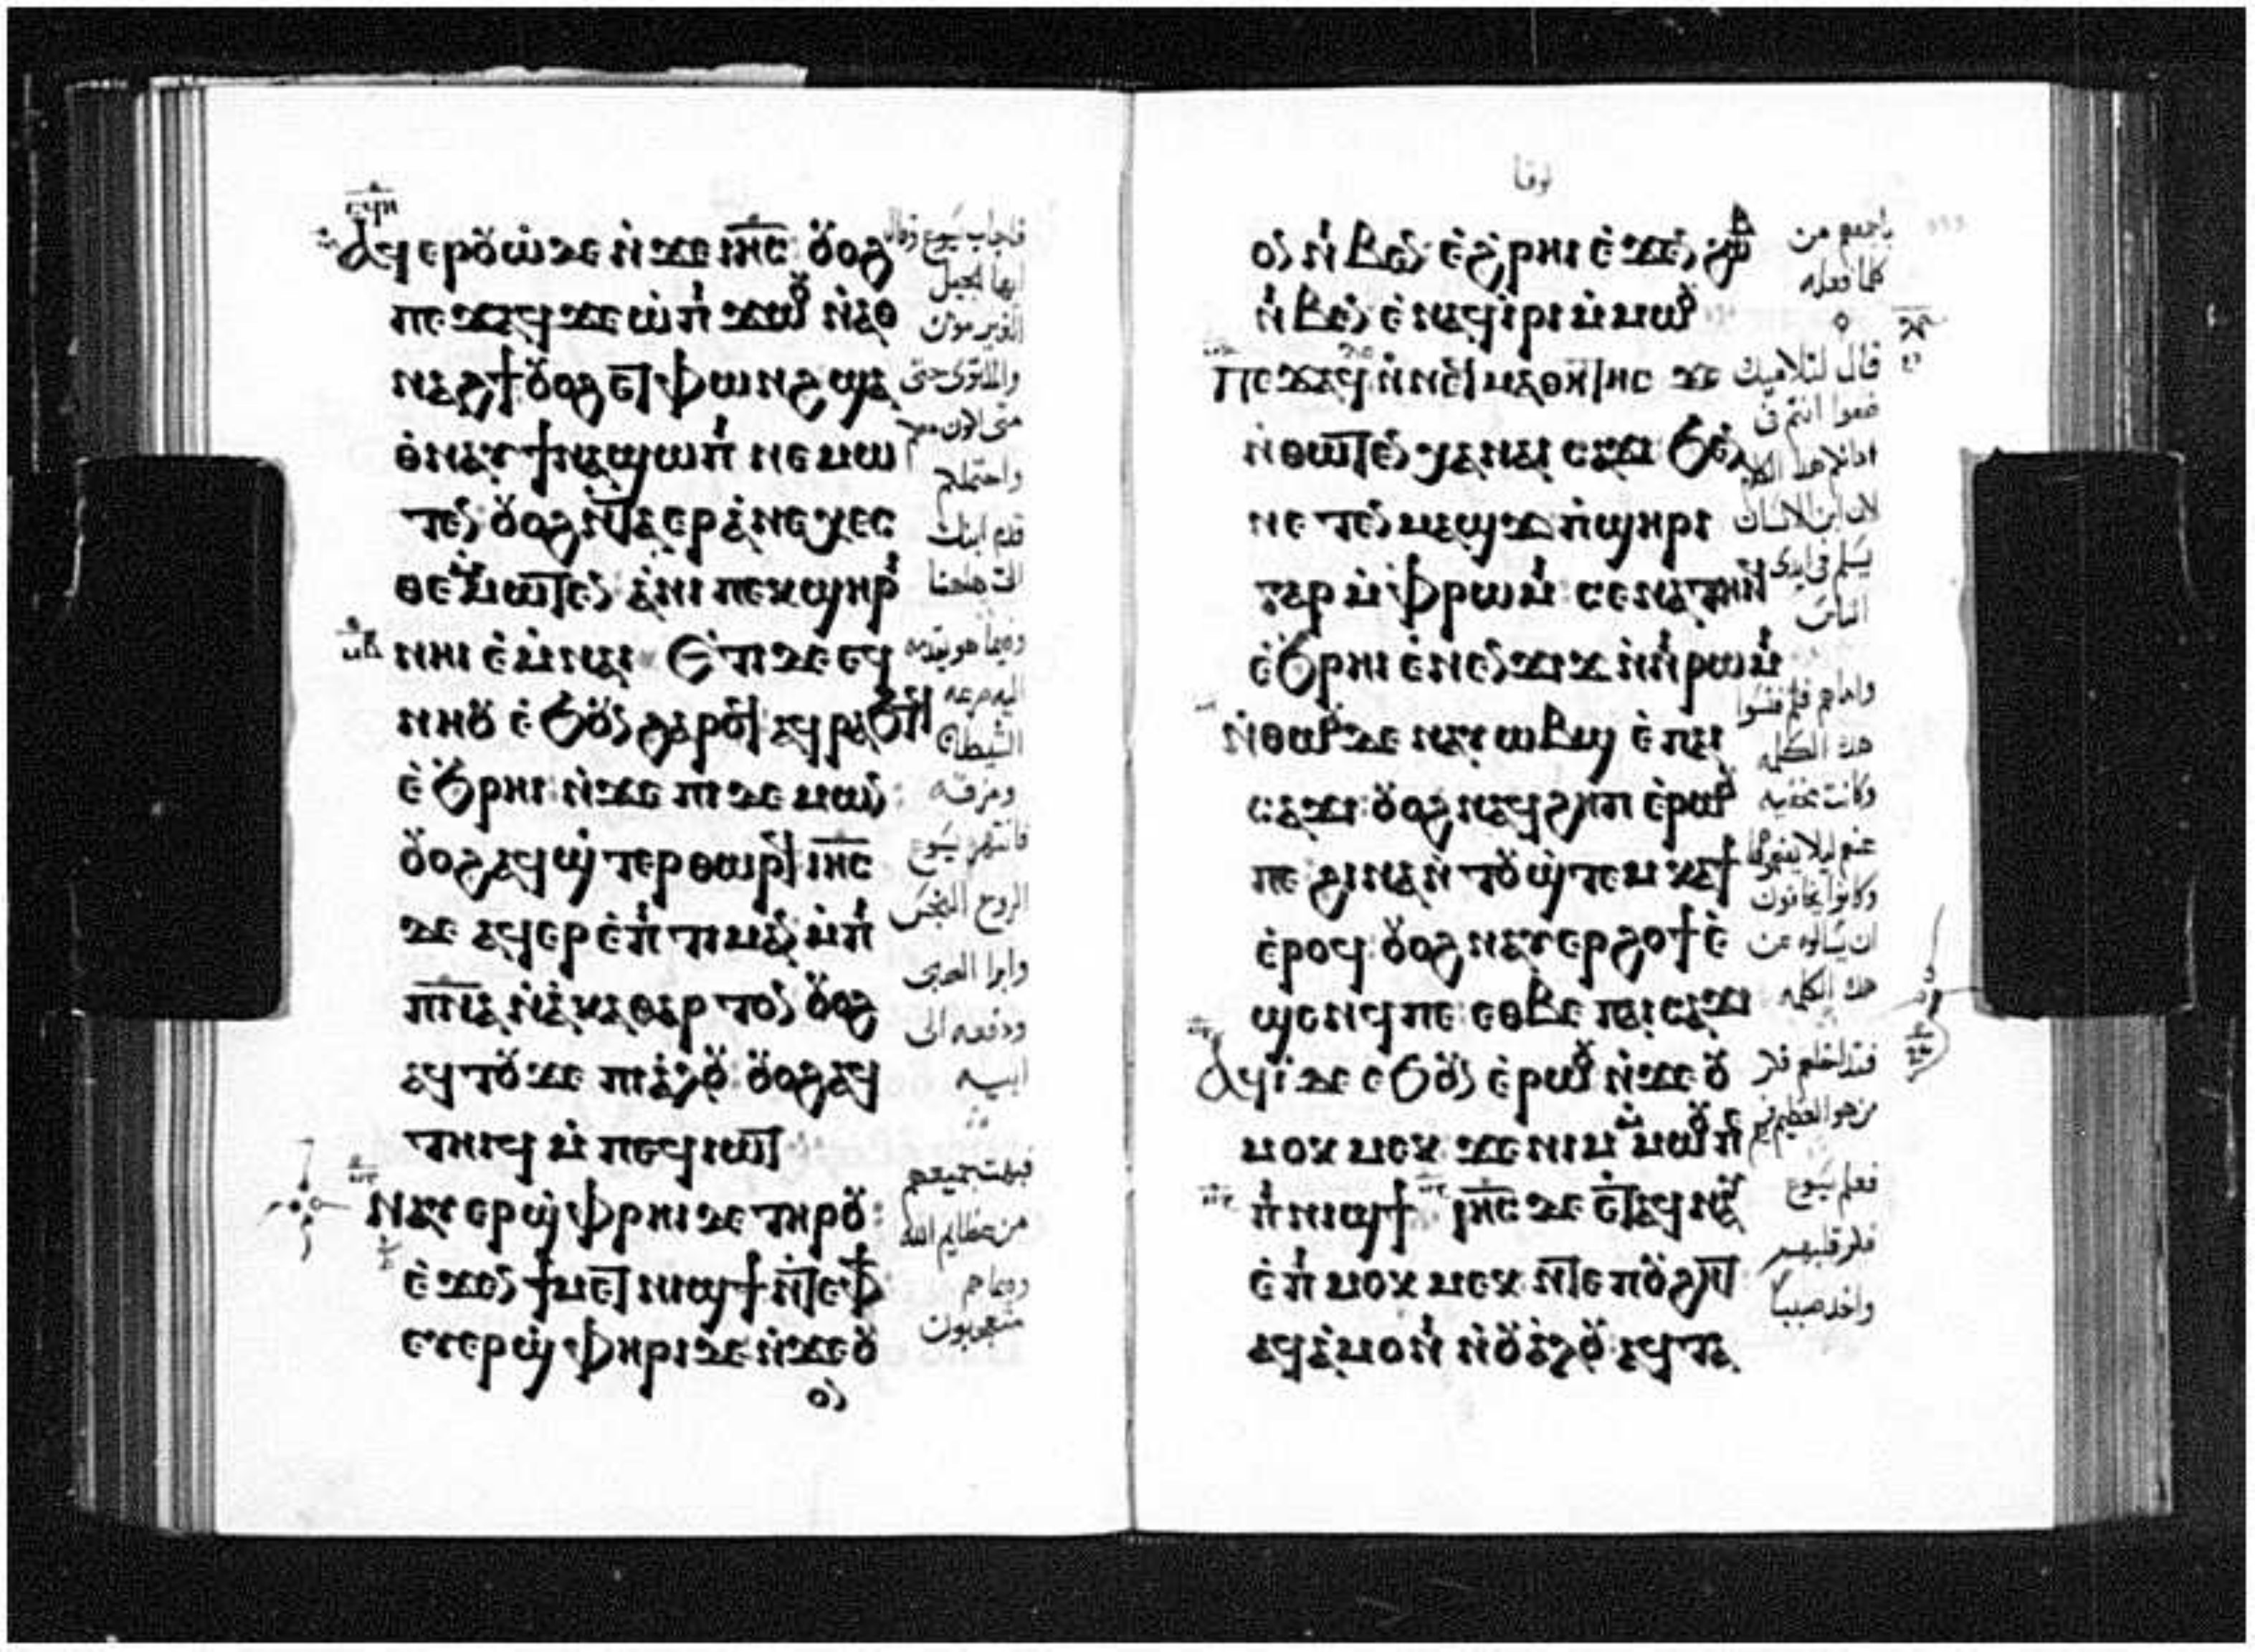 Ⲁϥⲉⲣⲟⲩⲱ̀ ⲇⲉ ⲛ̀ϫⲉ ⲓⲏ̅ⲥ̅: ⲟⲩⲟϩ
ⲡⲉϫⲁϥ ϫⲉ ⲱ̀ ⲡ̀ϫⲱⲟⲩ ⲛ̀ⲁⲑ
ⲛⲁϩϯ ⲟⲩⲟϩ ⲉⲧⲫⲱⲛϩ ϣⲁ
ⲑ̀ⲛⲁⲩ ϯⲛⲁϣⲱⲡⲓ ⲛⲉⲙⲱ
ⲧⲉⲛ ⲟⲩⲟϩ ⲛ̀ⲧⲁⲉⲣⲁ̀ⲛⲉⲭⲉⲥ
ⲑⲉ ⲙ̀ⲙⲱⲧⲉⲛ ⲁ̀ⲛⲓ ⲡⲉⲕϣⲏⲣⲓ
ⲛⲏⲓ ⲉ̀ⲙ̀ⲛⲁⲓ Ⲉⲧⲓ ⲇⲉ ⲉϥ
ⲛⲏⲟⲩ ⲉ̀ϧⲟⲩⲛ ϩⲁⲣⲟϥ ⲁϥⲣⲁϧⲧϥ
ⲉ̀ϧⲣⲏⲓ ⲛ̀ϫⲉ ⲡⲓⲇⲉⲙⲱⲛ:
ⲟⲩⲟϩ ⲁϥϣ̀ⲧⲉⲣⲑⲱⲣϥ ⲓⲏ̅ⲥ̅
ⲇⲉ ⲁϥⲉⲣⲉ̀ⲡⲓⲧⲓⲙⲁⲛ ⲙ̀ⲡⲓ
ⲡ̅ⲛ̅ⲁ̅ ⲛ̀ⲁ̀ⲕⲁⲑⲁⲣⲧⲟⲛ ⲟⲩⲟϩ
ⲁϥⲧⲟⲩϫⲉ ⲡⲓⲁ̀ⲗⲟⲩ ⲟⲩⲟϩ ⲁϥ
ⲧⲏⲓϥ ⲙ̀ⲡⲉϥⲓⲱⲧ
Ⲛⲁⲩⲉⲣϣ̀ⲫⲏⲣⲓ ⲇⲉ ⲧⲏⲣⲟⲩ:
ⲉ̀ϫⲉⲛ ϯⲙⲉⲧⲛⲓϣϯ ⲛ̀ⲧⲉ ⲫϯ
ⲉⲩⲉⲣϣ̀ⲫⲏⲣⲓ ⲇⲉ ⲛ̀ϫⲉ ⲟⲩ
ⲟⲛ
فاجاب يسوع وقال
ايها الجيل
الغير مومن
والملتوى حتى
متى اكون معكم
واحتملكم
قدم ابنك
الى هاهنا
وفيما هو يقدمه
اليه صرعه
الشيطان
ومزقه
فانتهر يسوع
الروح النجس
وابرا الصبى
ودفعه الى
ابيه
فبهت جميعهم
من عظايم الله
متعجبون
لوقا
ⲟⲛ ⲛ̀ⲃⲉⲛ ⲉ̀ϩ̀ⲣⲏⲓ ⲉ̀ϫⲉⲛ ϩⲱⲃ
ⲛ̀ⲃⲉⲛ ⲉ̀ⲛⲁϥⲓ̀ⲣⲓ ⲙ̀ⲙⲱⲟⲩ
Ⲡⲉϫⲁϥ ⲛ̀ⲛⲉϥⲙⲁⲑⲏⲧⲏⲥ ϫⲉ
ⲛ̀ⲑⲱⲧⲉⲛ ⲭⲁ ⲛⲁⲓ ⲥⲁϫⲓ ϧⲉⲛ
ⲛⲉⲧⲉⲛⲙⲁϣϫ ⲡ̀ϣⲏⲣⲓ
ⲅⲁⲣ ⲙ̀ⲫ̀ⲣⲱⲙⲓ ⲥⲉⲛⲁⲧⲏⲓϥ
ⲉ̀ϧ̀ⲣⲏⲓ ⲉ̀ⲛⲉⲛϫⲓϫ ⲛ̀ⲛⲓⲣⲱⲙⲓ
ⲛ̀ⲑⲱⲟⲩ ⲇⲉ ⲛⲁⲩⲱⲃϣ ⲉ̀ⲡⲁⲓ
ⲥⲁϫⲓ ⲟⲩⲟϩ ⲛⲁϥϩⲏⲡ ⲉ̀ⲣⲱⲟⲩ
ⲡⲉ ϩⲓⲛⲁ ⲛ̀ⲧⲟⲩϣ̀ⲧⲉⲙⲕⲁϯ
ⲉ̀ⲣⲟϥ ⲟⲩⲟϩ ⲛⲁⲩⲉⲣϩⲟϯ ⲉ̀
ϣⲉⲛϥ ⲡⲉ ⲉⲑⲃⲉ ⲡⲁⲓⲥⲁϫⲓ
Ⲁϥⲓ̀ ⲇⲉ ⲉϧⲟⲩⲛ ⲉ̀ⲣⲱⲟⲩ ⲛ̀ϫⲉ ⲟⲩ
ⲙⲟⲕⲙⲉⲕ ϫⲉ ⲛⲓⲙ ⲙ̀ⲙⲱⲟⲩ ⲡⲉ
ⲡⲓⲛⲓϣϯ ⲓⲏ̅ⲥ̅ ⲇⲉ ⲉⲧⲁϥⲛⲁⲩ
ⲉ̀ⲡⲓⲙⲟⲕⲙⲉⲕ ⲛ̀ⲧⲉ ⲡⲟⲩϩⲏⲧ
ⲁϥⲁ̀ⲙⲟⲛⲓ ⲛ̀ⲟⲩⲁ̀ⲗⲟⲩ ⲁϥⲧⲁ
كلما فعله
قال لتلاميذه
ضعوا انتم فى
لان ابن الانسان
يسلم فى ايدى
الناس
هذه الكلمه
وكانت مخفيه
وكانوا يخافون
ان يسالوه عن
هذه الكلمه
فعلم يسوع
فكر قلبهم
واخذ صبيا